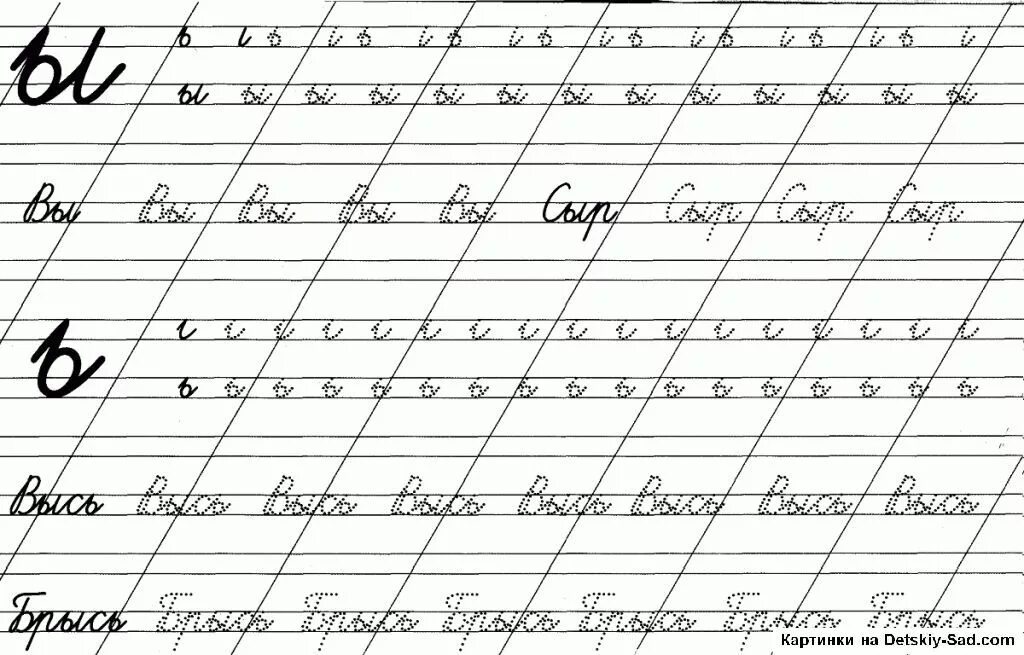 Ы
ь ι ь ι ь ι ь ι ь ι ь ι ь ι ь ι ь ι
ы ы ы ы ы ы ы ы ы ы ы ы ы
Вы Вы Вы Вы Вы Сыр Сыр Сыр Сыр
ь
ι ι ι ι ι ι ι ι ι ι ι ι ι ι ι ι ι
ь ь ь ь ь ь ь ь ь ь ь ь ь ь ь ь ь
Высь Высь Высь Высь Высь Высь Высь Высь
Брысь Брысь Брысь Брысь Брысь Брысь Брысь
Картинки на Detskiy-Sad.com